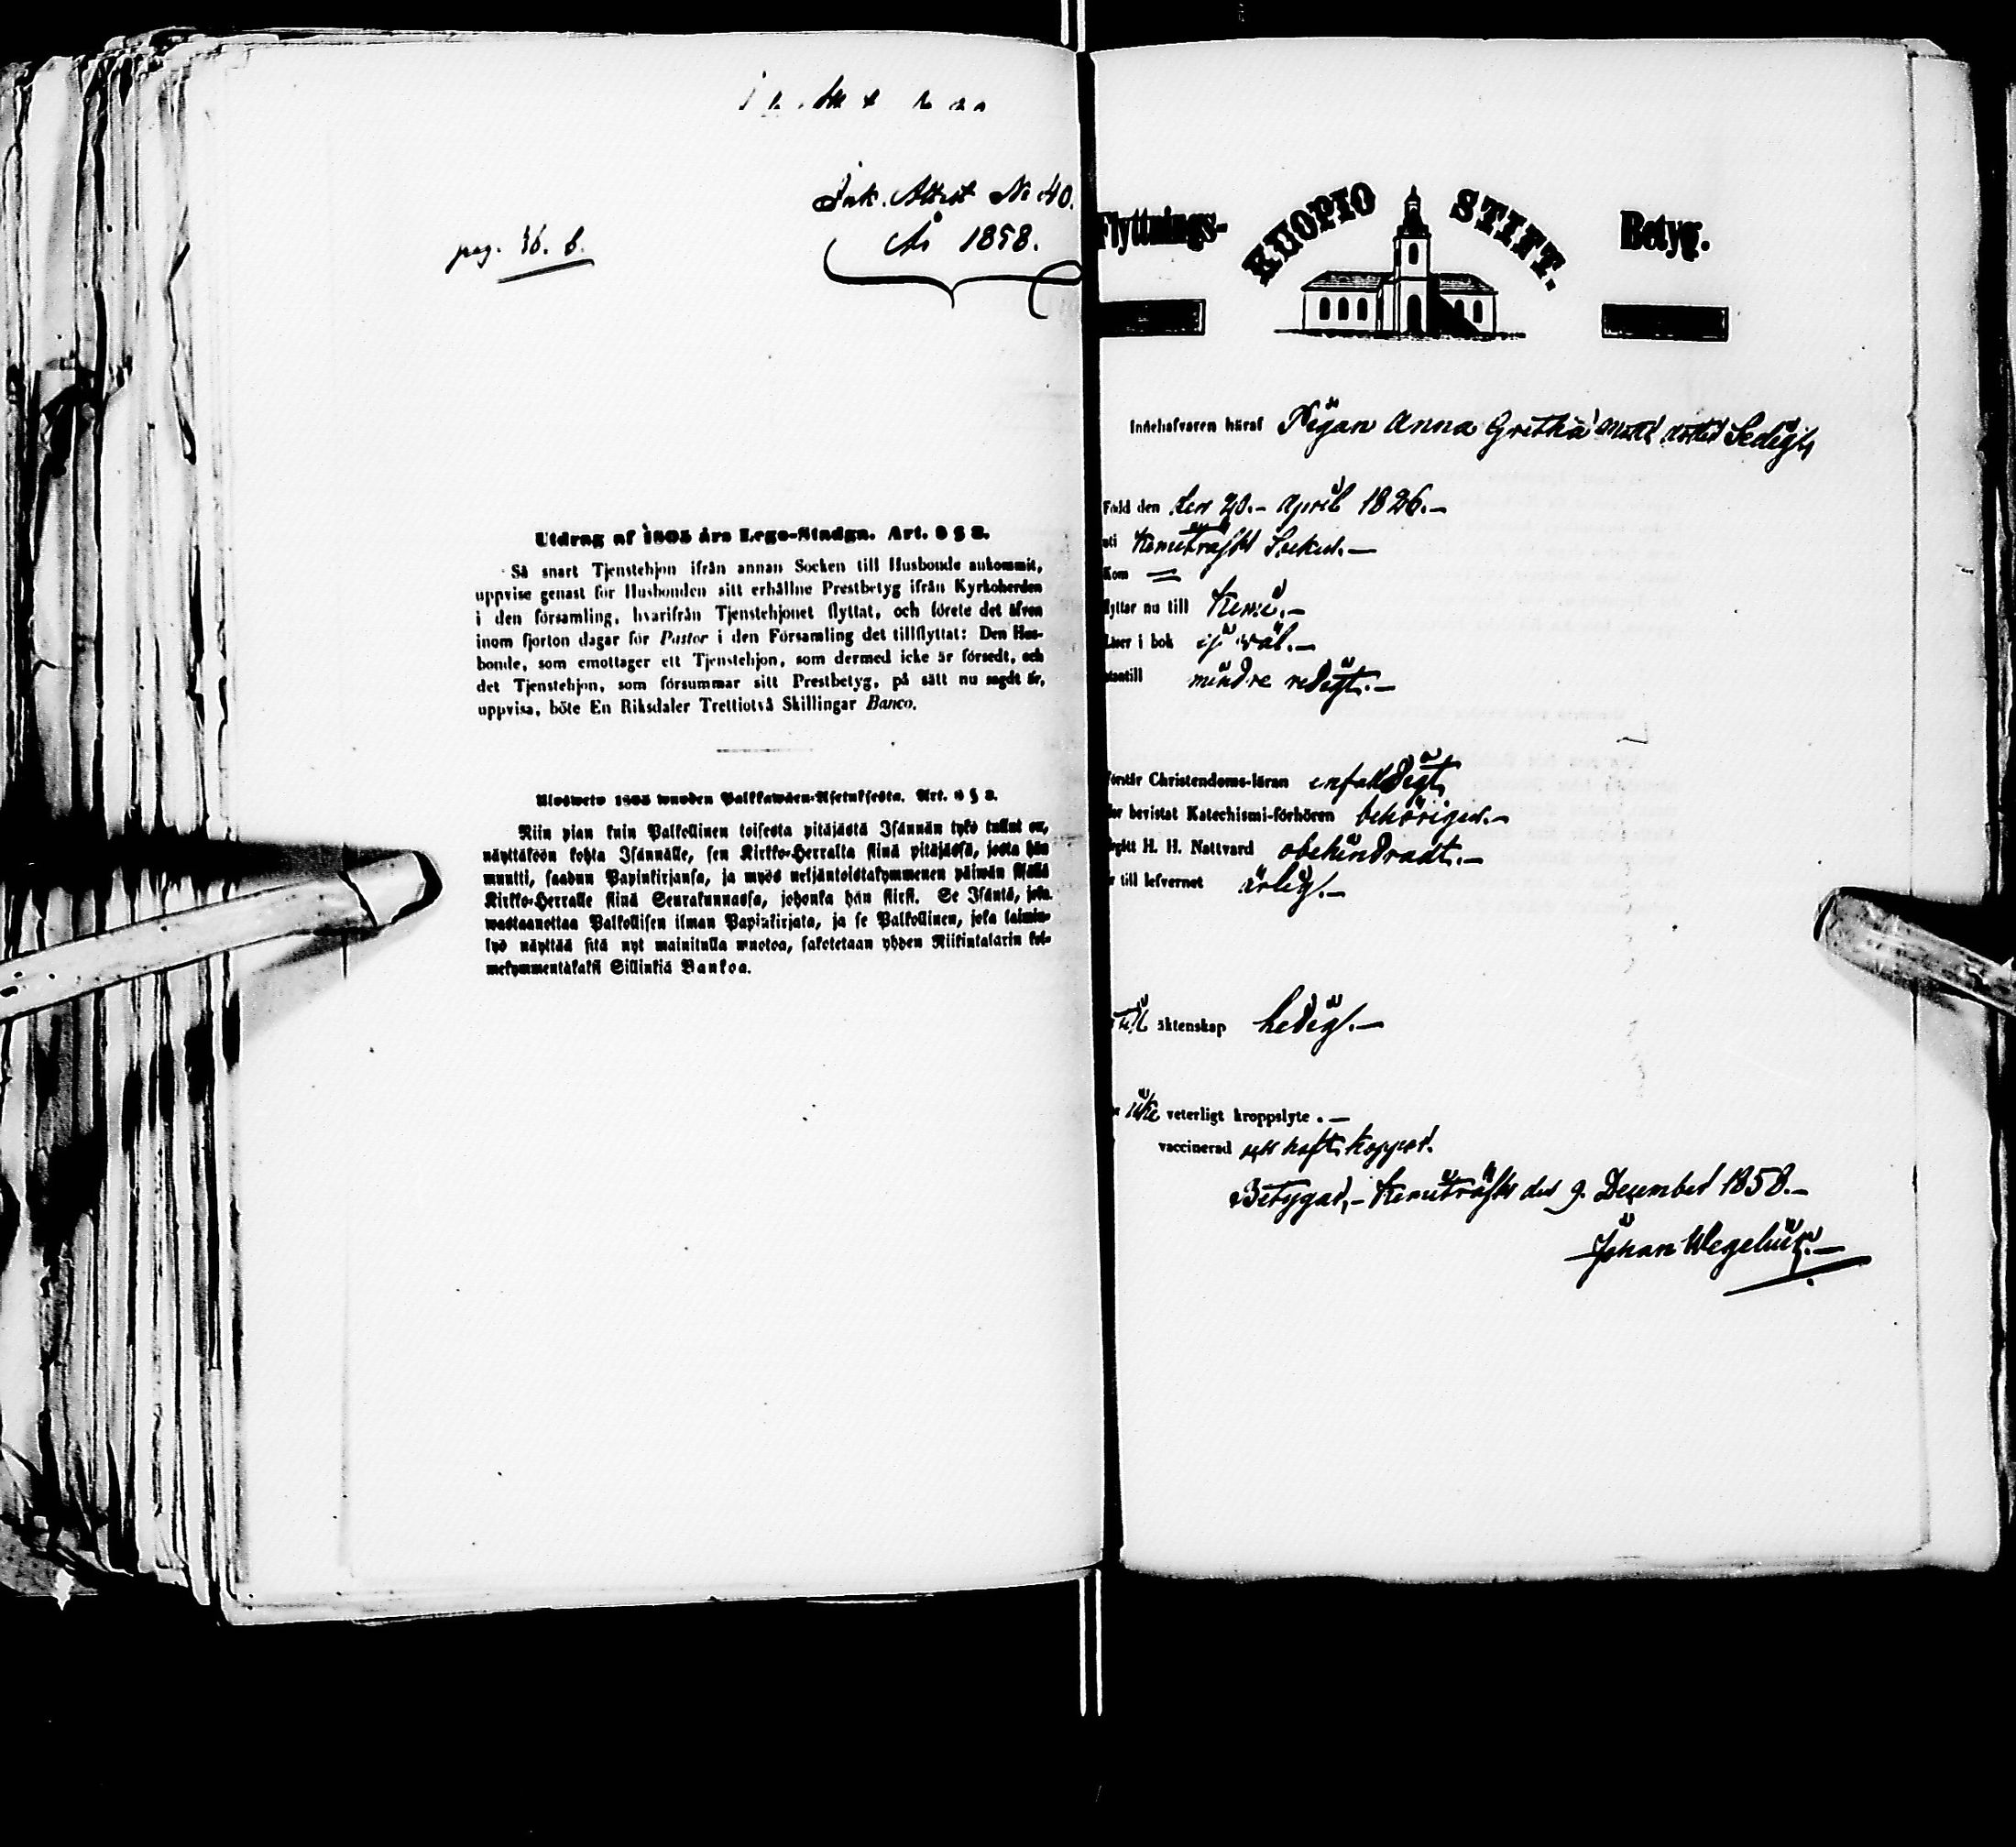 Ink. Attest No 40.
År 1858.
pag. 36. b.
Utdrag af 1805 års Lego-Stadga. Art. 8 § 8.
Så snart Tjenstehjon ifrån annan Socken till Husbonde ankommit,
uppvise genast för Husbonden sitt erhållne Prestbetyg ifrån Kyrkoherden
i den församling, hvarifrån Tjenstehjonet flyttat, och förete det äfven
inom fjorton dagar för Pastor i den Församling det tillflyttat: Den Hus-
bonde, som emottager ett Tjenstehjon, som dermed icke är försedt, och
det Tjenstehjon, som försummar sitt Prestbetyg, på sätt nu sagdt är,
uppvisa, böte En Riksdaler Trettiotvå Skillingar Banco.
Ulosweto 1805 wuoden Palkkawäen-Asetuksesta. Art. 8 § 8.
Niin pian kuin Palkollinen toisesta pitäjästä Isännän tykö tullut on,
näyttäköön kohta Isännälle, sen Kirkko-Herralta siinä pitäjässä, josta hän
muutti, saadun Papinkirjansa, ja myös neljäntoistakymmenen päiwän sisällä
Kirkko-Herralle siinä Seurakunnassa, johonka hän siirsi. Se Isäntä, joka
wastaanottaa Palkollisen ilman Papinkirjata, ja se Palkollinen, joka laimin-
lyö näyttää sitä nyt mainitulla muotoa, sakotetaan yhden Riikintalarin kol-
mekymmentäkaksi Sillinkiä Bankoa.
Flyttnings- KUOPIO STIFT. Betyg.
Innehafvaren häraf Pigan Anna Gretha Matts dotter Sedigt
Född den den 20.- April 1826.-
uti Kemiträsks Socken.-
Kom =
flyttar nu till Kemi.-
Läser i bok ej väl.-
utantill mindre redigt.-
förstår Christendoms-läran enfaldigt
har bevistat Katechismi-förhören behörigen.-
begått H. H. Nattvard obehindradt.-
är till lefvernet ärlig.-
till äktenskap ledig.-
icke veterligt kroppslyte.-
vaccinerad haft koppor.
Betygar,- Kemiträsk den 9. December 1858.-
Johan Wegelius.-